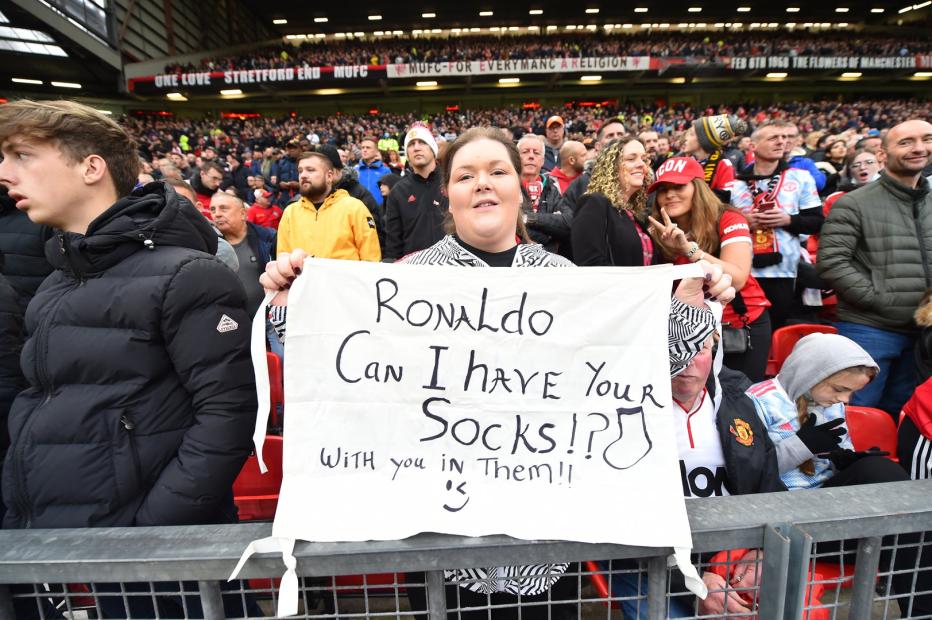 ONE LOVE STRETFORD END MUFC
MUFC-FOR EVERYMANC A RELIGION
FEB 6TH 1958 THE FLOWERS OF MANCHESTER
RONALDO
CAN I HAVE YOUR
SOCKS!?
WITH YOU IN THEM!!